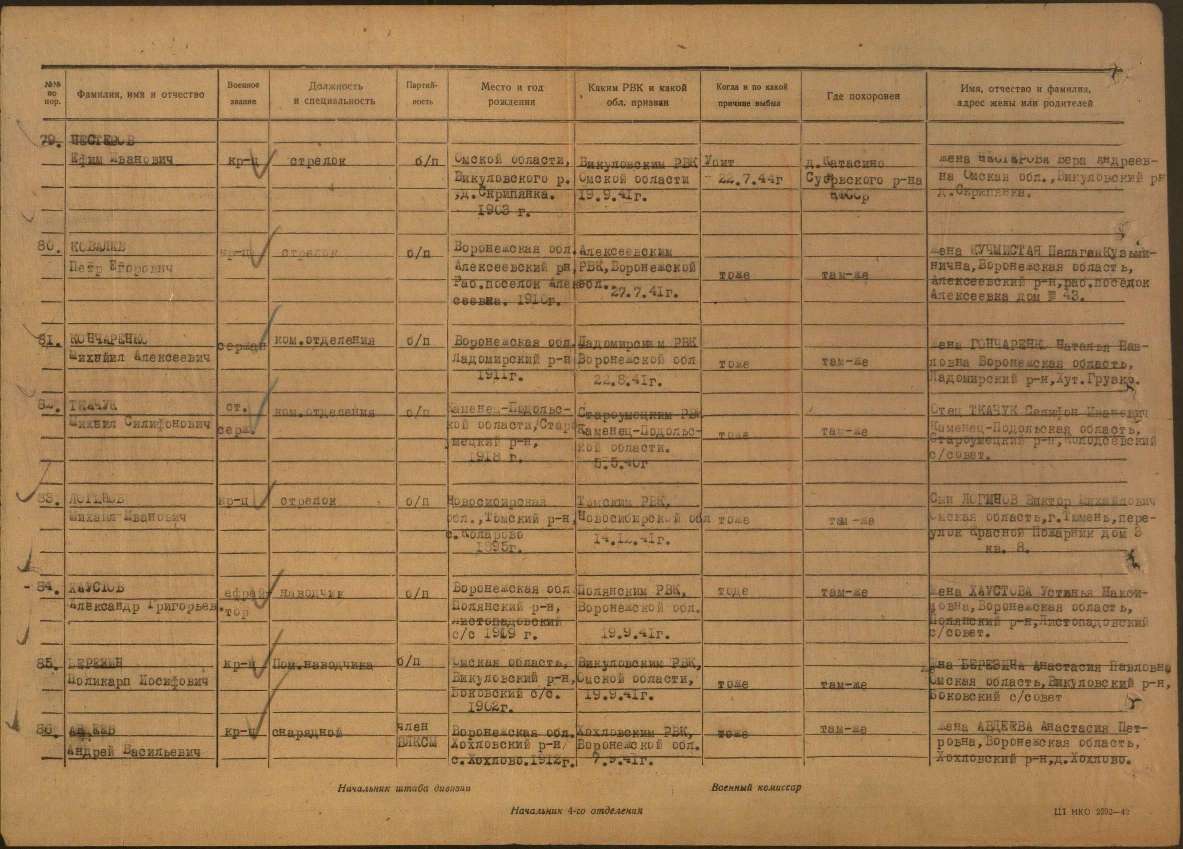 №№ по пор.
Фамилия, имя и отчество
Военное звание
Должность и специальность
Партийность
Место и год рождения
Каким РВК и какой обл. призван
Когда и по какой причине выбыл
Где похоронен
Имя, отчество и фамилия, адрес жены или родителей
79. НЕСТЕРОВ
Ефим Иванович кр-ц стрелок б/п Омской области, Викуловским РВК Убит д.Катасино жена НЕСТЕРОВА Вера Андреев-
Викуловского р. Омской области 22.7.44г р-на на Омская обл.,Викуловский рн
,д.Скрипянка. 19.9.41г. д.Скрипянка.
1903 г.
80. КОВАЛЕВ кр-ц стрелок б/п Воронежская обл. Алексеевским жена КУЧМИСТАЯ Пелагея Кузьми-
Петр Егорович Алексеевский рн, РВК,Воронежской тоже там-же нична,Воронежская область,
Раб.поселок Алек обл. Алексеевский р-н,раб.поселок
сеевка. 1910г. 27.7.41г. Алексеевка дом № 43.
81. КОНЧАРЕНКО сержан ком.отделения б/п Воронежская обл. Ладомирским РВК жена ГОНЧАРЕНК Наталья Пав-
Михийил Алексеевич Ладомирский р-н Воронежской обл тоже там-же ловна Воронежская область,
1911г. 22.8.41г. Ладомирский р-н,Хут.Грузко.
82. ТКАЧУК ст. ком.отделения б/п Каменец-Подольс- Староушецким РВК Отец ТКАЧУК Селифон Иванович
Михаил Силифонович серж. кой области/Стар Каменец-Подольс- тоже там-же Каменец-Подольская область,
ушецкий р-н, кой области. Староушецкий р-н,
1918 г. 5.5.40г с/совет.
83. ЛОГИНОВ кр-ц стрелок б/п Новосибирская Томским РВК, Сын ЛОГИНОВ Виктор Михайлович
Михаил Иванович обл.,Томский р-н, Новосибирской обл тоже там-же Омская область,г.Тюмень,пере-
с.Коларово 14.12.41г. улок Красной Пожарник дом 5
1895г. кв. 8.
84. ХАУСТОВ ефрей наводчик б/п Воронежская обл Полянским РВК, тоде там-же жена ХАУСТОВА Устинья Макси-
Александр Григорьев. тор Полянский р-н, Воронежской обл. мовна,Воронежская область,
Листопадовский Полянский р-н,Листопадовский
с/с 1919 г. 19.9.41г. с/совет.
85. БЕРЕЖЕН кр-ц Пом.наводчика б/п Омская область, Викуловским РВК, жена БЕРЕЗИНА Анастасия Павловна
Поликарп Иосифович Викуловский р-н, Омской области, тоже там-же Омская область,Викуловский р-н,
Боковский с/с. 19.9.41г. Боковский с/совет
1902г.
86. АВДЕЕВ кр-ц снарядной член Воронежская обл. Хохловским РВК, тоже там-же жена АВДЕЕВА Анастасия Пет-
Андрей Васильевич ВЛКСМ Хохловский р-н/ Воронежской обл. ровна,Воронежская область,
с.Хохлово.1912г. 7.9.41г. Хохловский р-н,д.Хохлово.
Начальник штаба дивизии
Военный комиссар
Начальник 4-го отделения